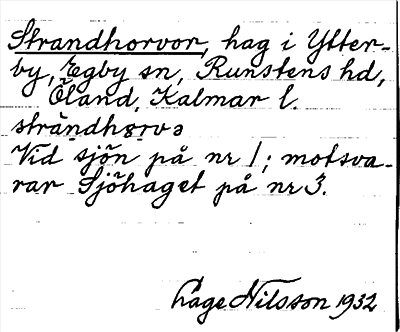 Strandhorvor, hag i Ytter-
by, Egby sn, Runstens hd,
Öland, Kalmar l.
strandhɷrvə
Vid sjön på nr 1; motsva-
rar Sjöhaget på nr 3.
Åge Nilsson 1932